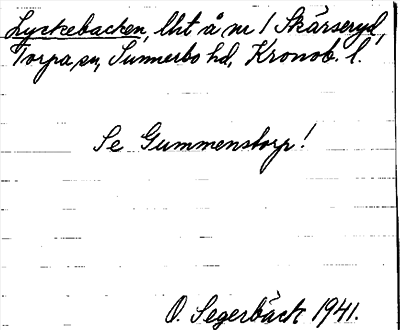 Lyckebacken, lht å nr 1 Skärseryd,
Torpa sn, Sunnerbo hd, Kronob. l.
Se Gummenstorp!
O. Segerbäck 1941.